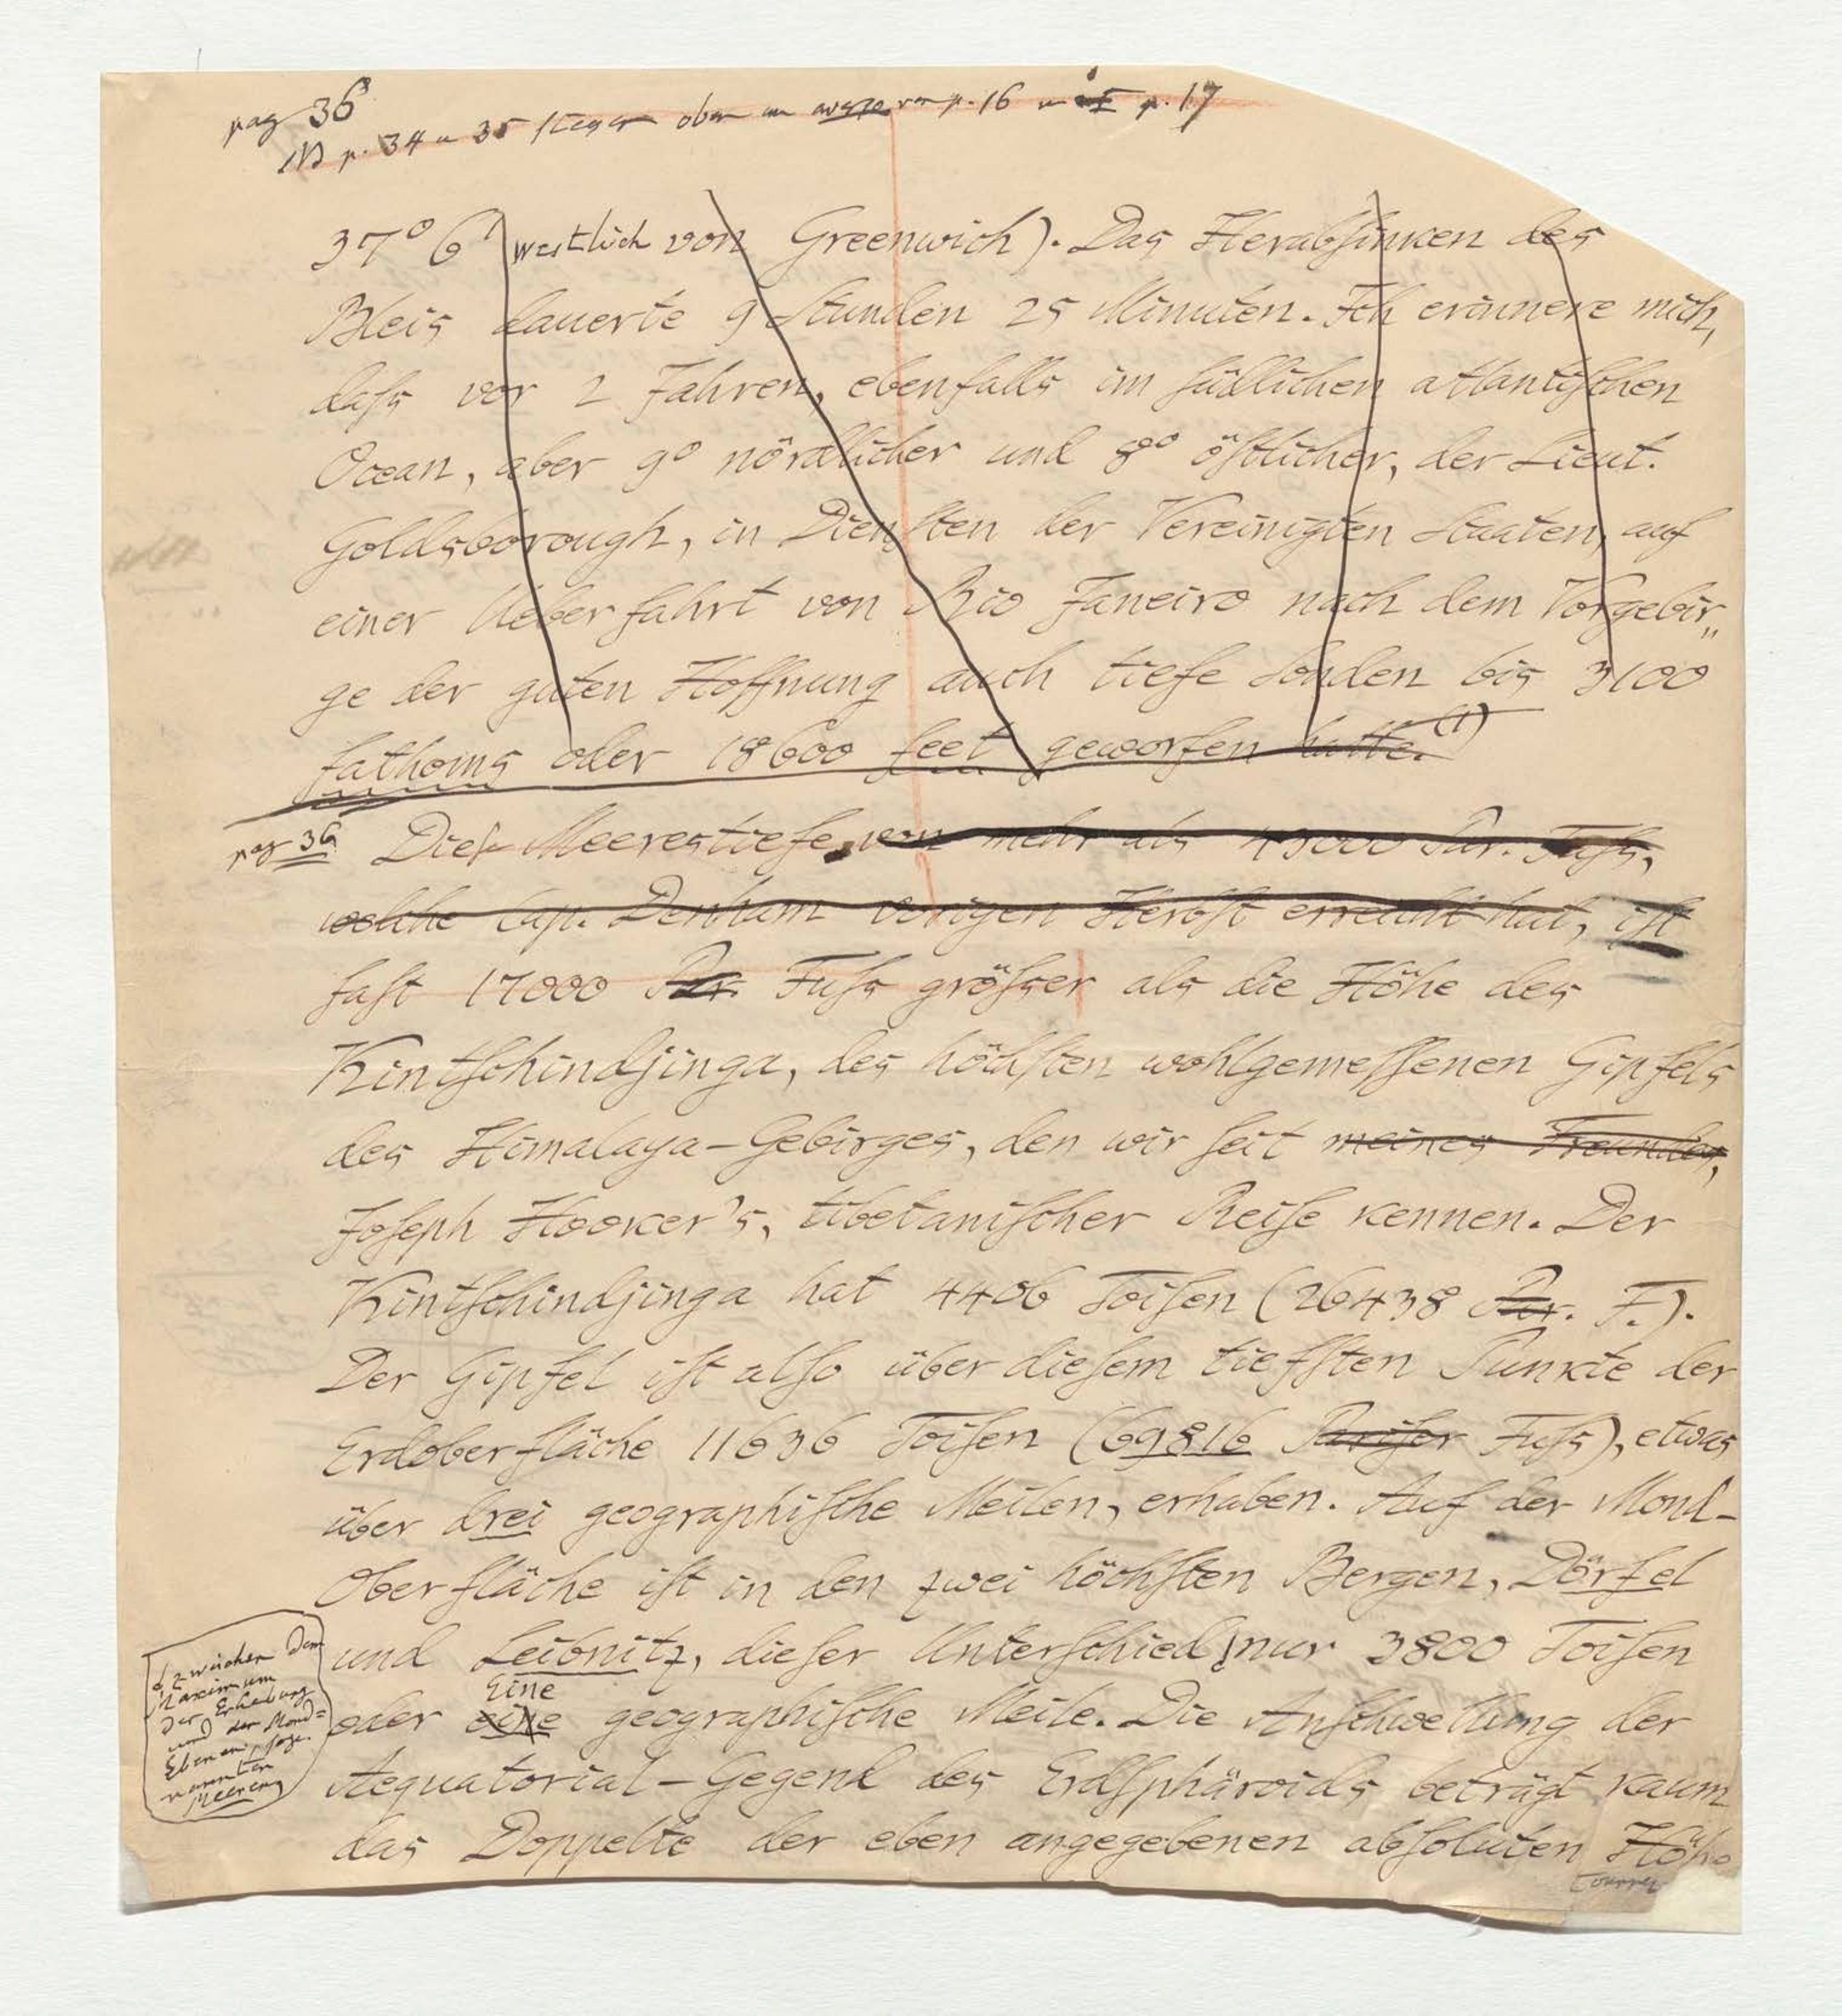 pag 36
NB p. 34 u 35 liegen oben p. 16 p. 17
37° 6' westlich von Greenwich). Das Herabsinken des
Bleis dauerte 9 Stunden 25 Minuten. Ich erinnere mich,
daſs vor 2 Jahren, ebenfalls im südlichen atlantischen
Ocean, aber 9° nördlicher und 8° östlicher, der Lieut.
Goldsborough, in Diensten der Vereinigten Staaten, auf
einer Ueberfahrt von Rio Janeiro nach dem Vorgebir„
ge der guten Hoffnung auch tiefe Sonden bis 3100
fathoms oder 18600 feet geworfen hatte.(1)
pag 36 Diese Meerestiefe, von mehr als 43000 Par. Fuſs,
welche Cap. Denham vorigen Herbst erreicht hat, ist
fast 17000 Par. Fuſs gröſser als die Höhe des
Kintschindjinga, des höchsten wohlgemessenen Gipfels
des Himalaya-Gebirges, den wir seit meines Freundes,
Joseph Hooker's, tibetanischer Reise kennen. Der
Kintschindjinga hat 4406 Toisen (26438 Par. F.).
Der Gipfel ist also über diesem tiefsten Punkte der
Erdoberfläche 11636 Toisen (69816 Pariser Fuſs), etwas
über drei geographische Meilen, erhaben. Auf der Mond-
Oberfläche ist in den zwei höchsten Bergen, Dörfel
und Leibnitz, dieser Unterschied nur 3800 Toisen
Eine
oder eine geographische Meile. Die Anschwellung der
Aequatorial-Gegend des Erdsphäroids beträgt kaum
das Doppelte der eben angegebenen absoluten Höhe
zwischen dem
Maximum
der Erhebung
und der Mond=
Ebenen, soge-
nannten
Meeren